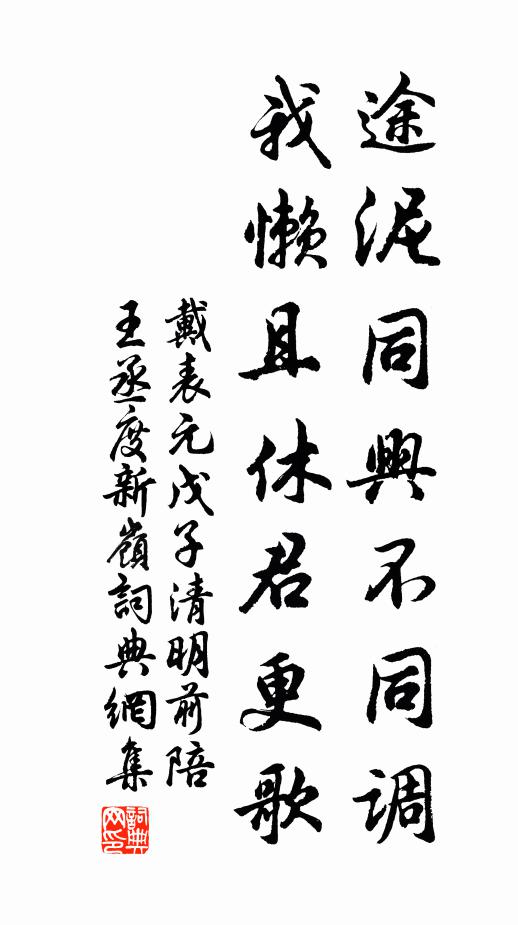 途泥同興不同調
我懶且休君更歌
戴表元戊子清明前陪
王丞度新嶺詞典網集
詞典
网印